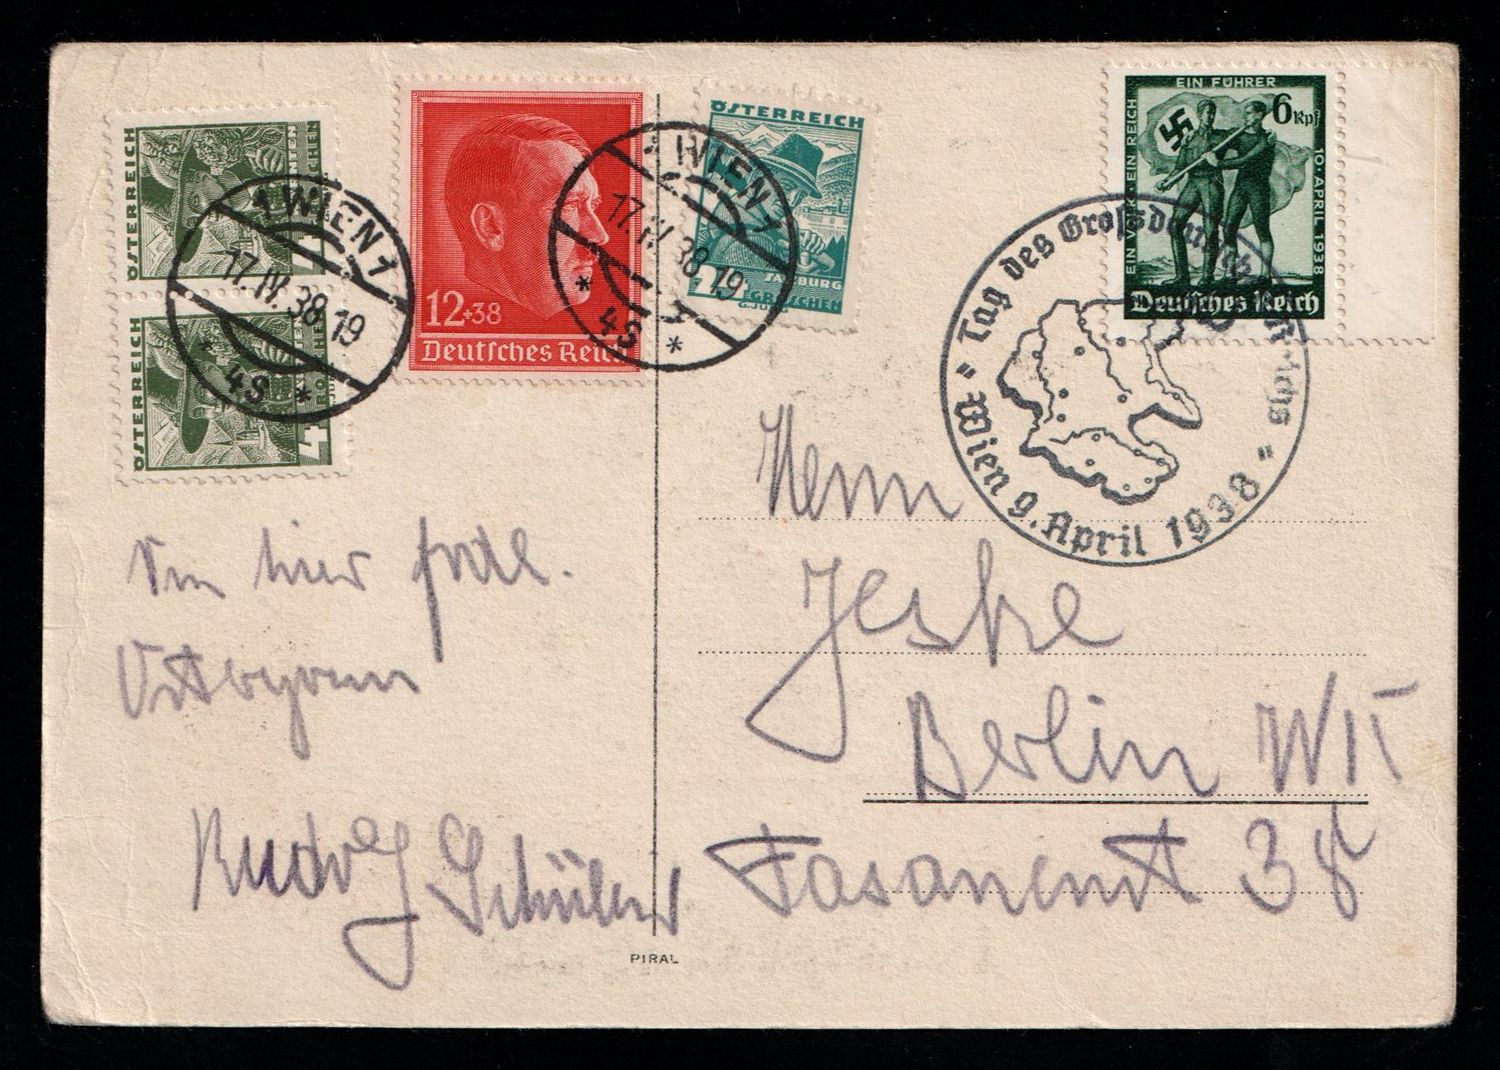 ÖSTERREICH
ÖSTERREICH
4
1 WIEN 1
17.IV.38.19
* 4S *
12+38
Deutsches Reich
ÖSTERREICH
SALZBURG
GROSCHEN
1 WIEN 1
17.IV.38.19
* 4S *
EIN FÜHRER
EIN VOLK · EIN REICH
10·APRIL 1938
6 Rpf
Deutsches Reich
Tag des Großdeutschen Reichs
Wien 9. April 1938
Von hier
Rudolf Schüler
Herrn
Jeske
Berlin W 15
Fasanenst 38
PIRAL